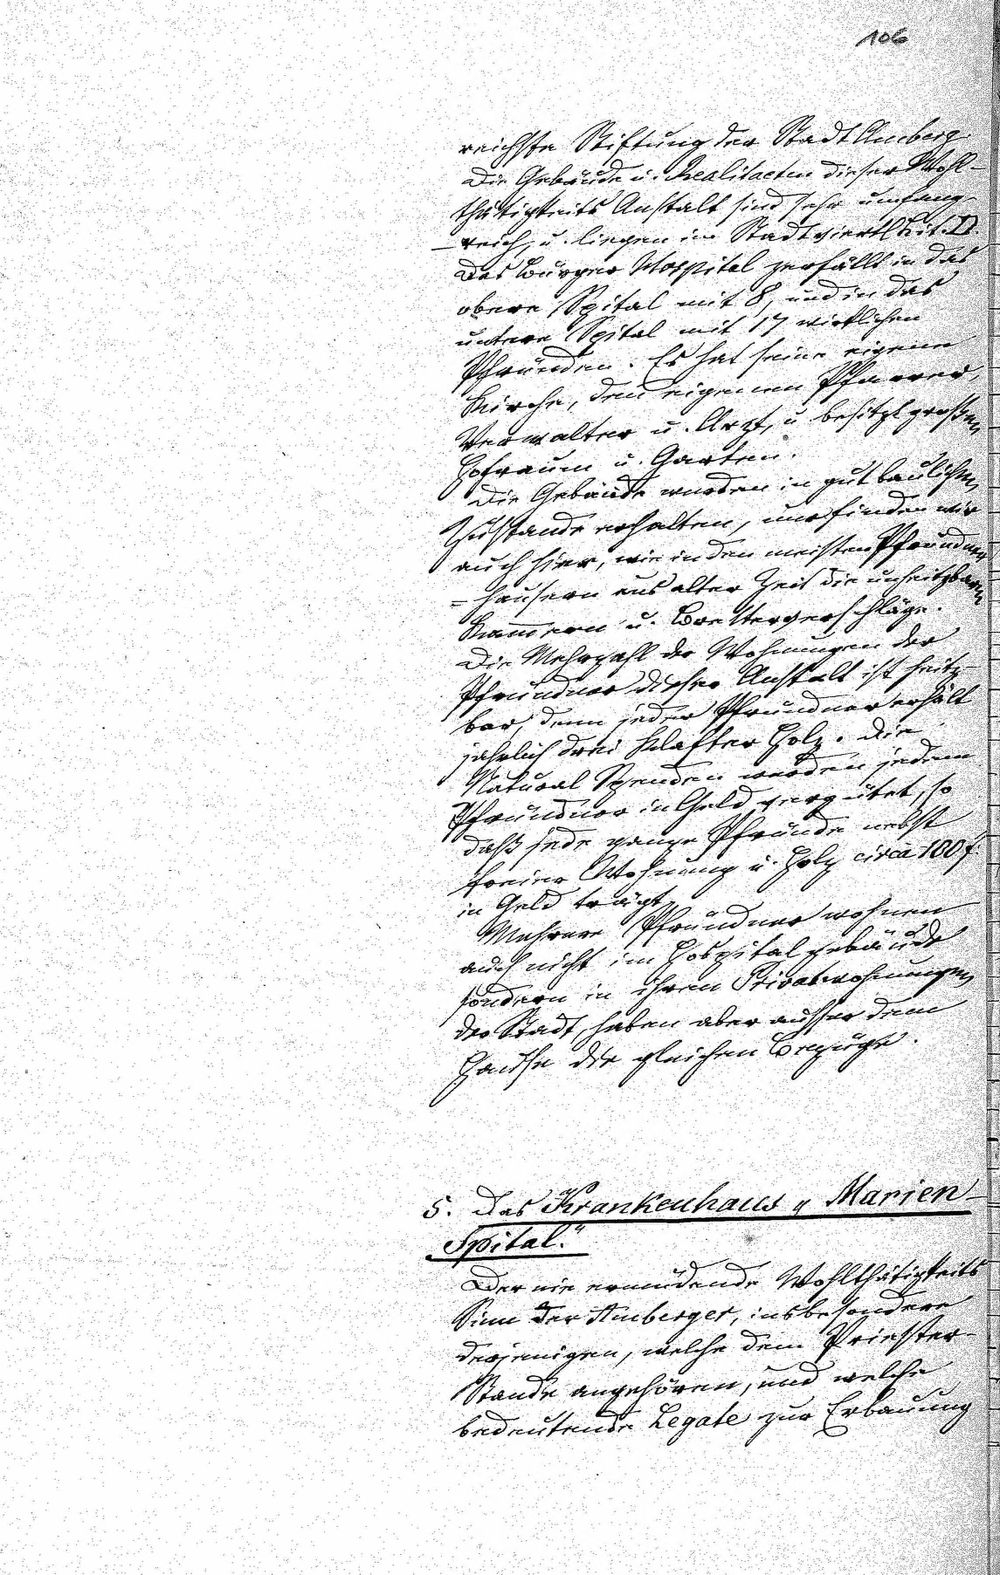 106
reichste Stiftung der Stadt Amberg.
Die Gebäude u. Realitaeten dieser Wohl-
thätigkeits Anstalt sind sehr umfang-
-reich, u. liegen im Stadtviertl Lit. D.
Das Bürger Hospital zerfällt in das
obere Spital mit 8, und in das
untere Spital mit 17 wirklichen
Pfründen. Es hat seine eigene
Kirche, den eigenen Pfarrer,
Verwalter u. Arzt, u. besitzt großen
Hofraum u. Garten.
Die Gebäude wurden in gut baulichen
Zustande erhalten, nur finden wir
auch hier, wie in den meisten Pfründner
-häusern aus alter Zeit die unheitzbaren
Kammern u. Bretterverschläge.
Die Mehrzahl der Wohnungen der
Pfründner dieser Anstalt ist heitz-
bar, denn jeder Pfründner erhält
jährlich drei Klafter Holz. Die
Natural Spenden werden jedem
Pfründner in Geld vergütet, so
daß jede ganze Pfründe nebst
freier Wohnung u. Holz circa 100 f.
in Geld trägt.
Mehrere Pfründner wohnen
auch nicht im Hospitalgebäude
sondern in ihren Privatwohnungen
der Stadt, haben aber ausser dem
Hause die gleichen Bezüge.
5. Das Krankenhaus „Marien-
Spital."
Der nie ermüdende Wohlthätigkeits
Sinn der Amberger, insbesondere
derjenigen, welche dem Priester-
Stande angehören, und welche
bedeutende Legate zur Erbauung